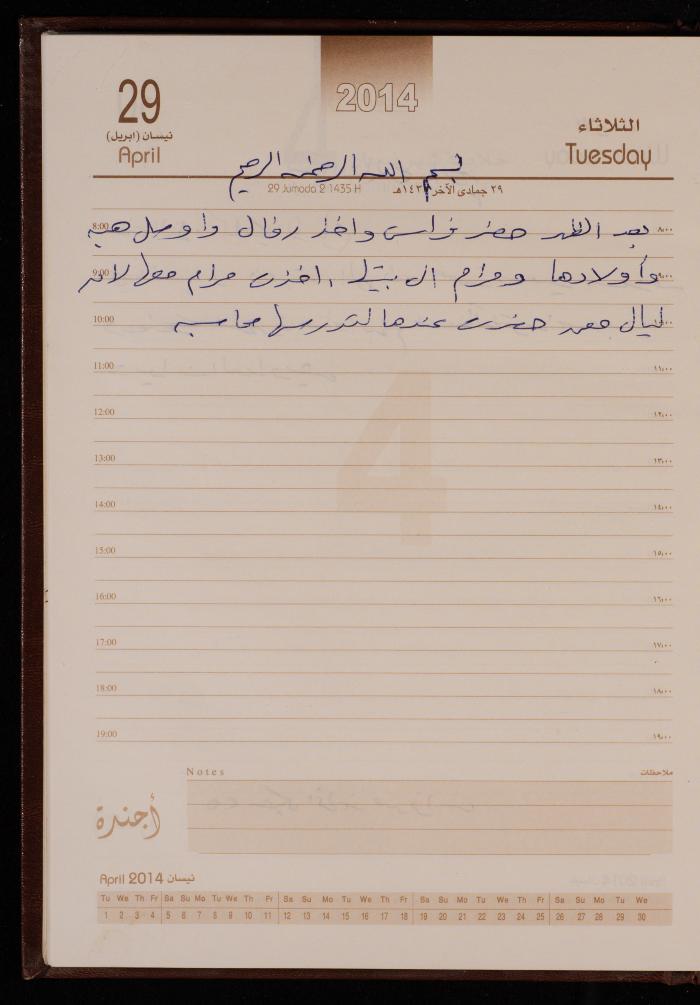 29
نيسان (ابريل)
April
2014
الثلاثاء
Tuesday
بسم الله الرحمن الرحيم
29 Jumada 2 1435 H
٢٩ جمادى الآخر ١٤٣٥هـ
8:00 بعد الظهر حضر فراس واخذ رفال وأوصل هبه ٨:٠٠
9:00 وأولادها ومرام الى بيتها. اخذت مرام معها لان ٩:٠٠
10:00 ليال حضرت عندها لتدرسها محاسبه
11:00 ١١:٠٠
12:00 ١٢:٠٠
13:00 ١٣:٠٠
14:00 ١٤:٠٠
15:00 ١٥:٠٠
16:00 ١٦:٠٠
17:00 ١٧:٠٠
18:00 ١٨:٠٠
19:00 ١٩:٠٠
4
Notes ملاحظات
أجندة
April 2014 نيسان
Tu We Th Fr Sa Su Mo Tu We Th Fr Sa Su Mo Tu We Th Fr Sa Su Mo Tu We Th Fr Sa Su Mo Tu We
1 2 3 4 5 6 7 8 9 10 11 12 13 14 15 16 17 18 19 20 21 22 23 24 25 26 27 28 29 30